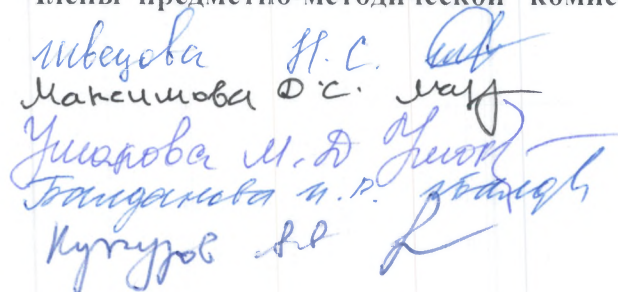 Члены предметно-методической комис
Швецова Н.С.
Максимова О.С.
Ушакова М.Д
Банданова И.В.
А.А